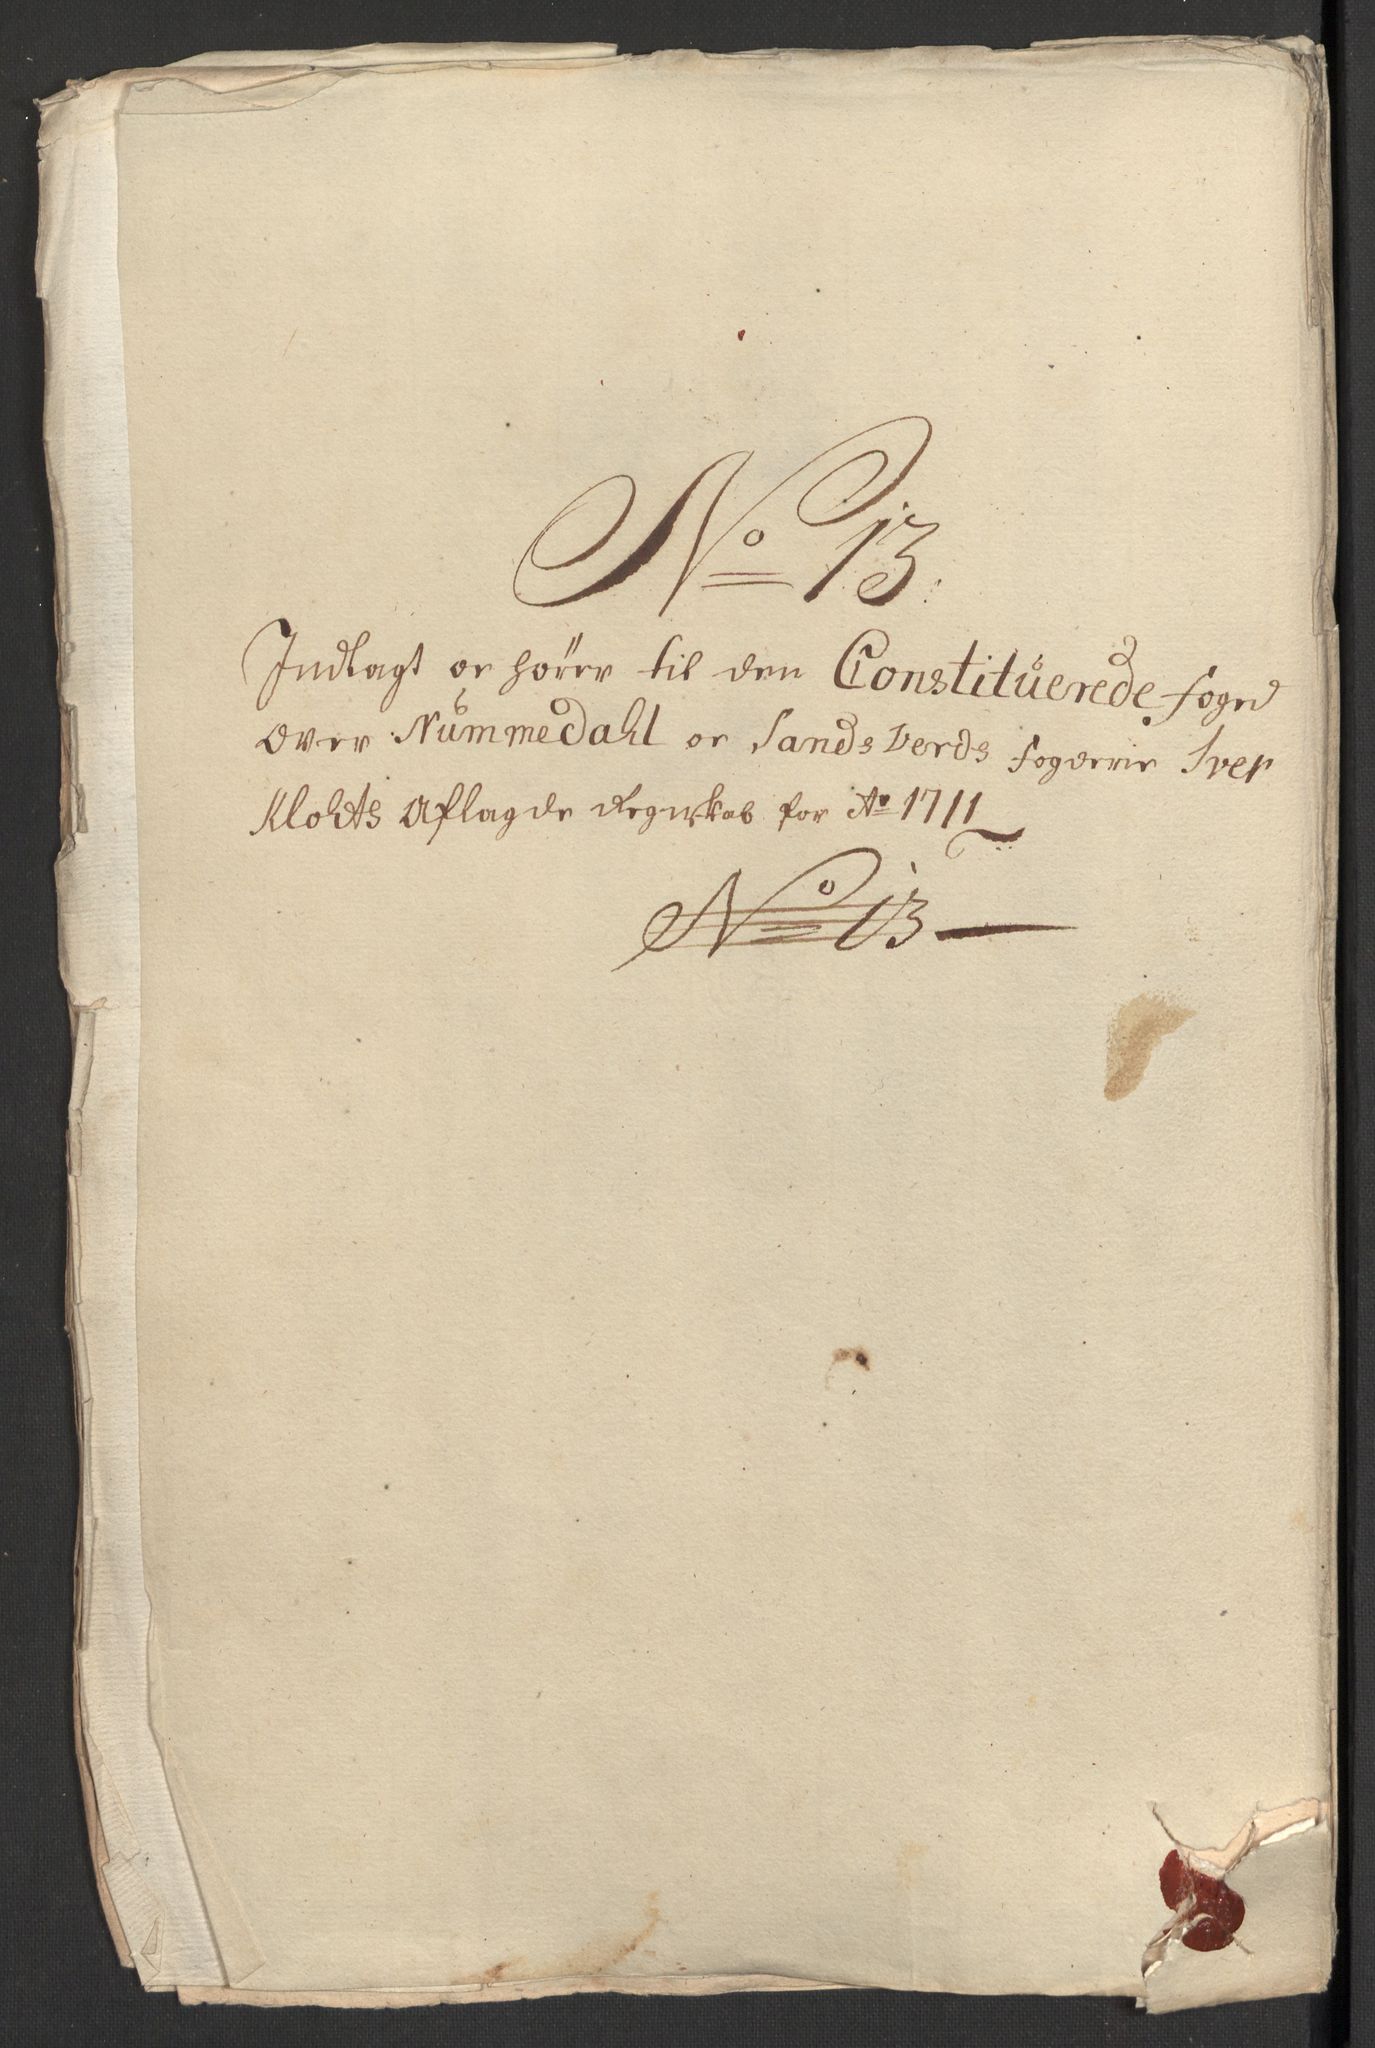 No 13.
Indlagt oc hörer til den Constituerede foged
Over Nummedahl oc Sands Verds fogderie Iver
Klohts Aflagde Regnskab for Ao 1711
No 13